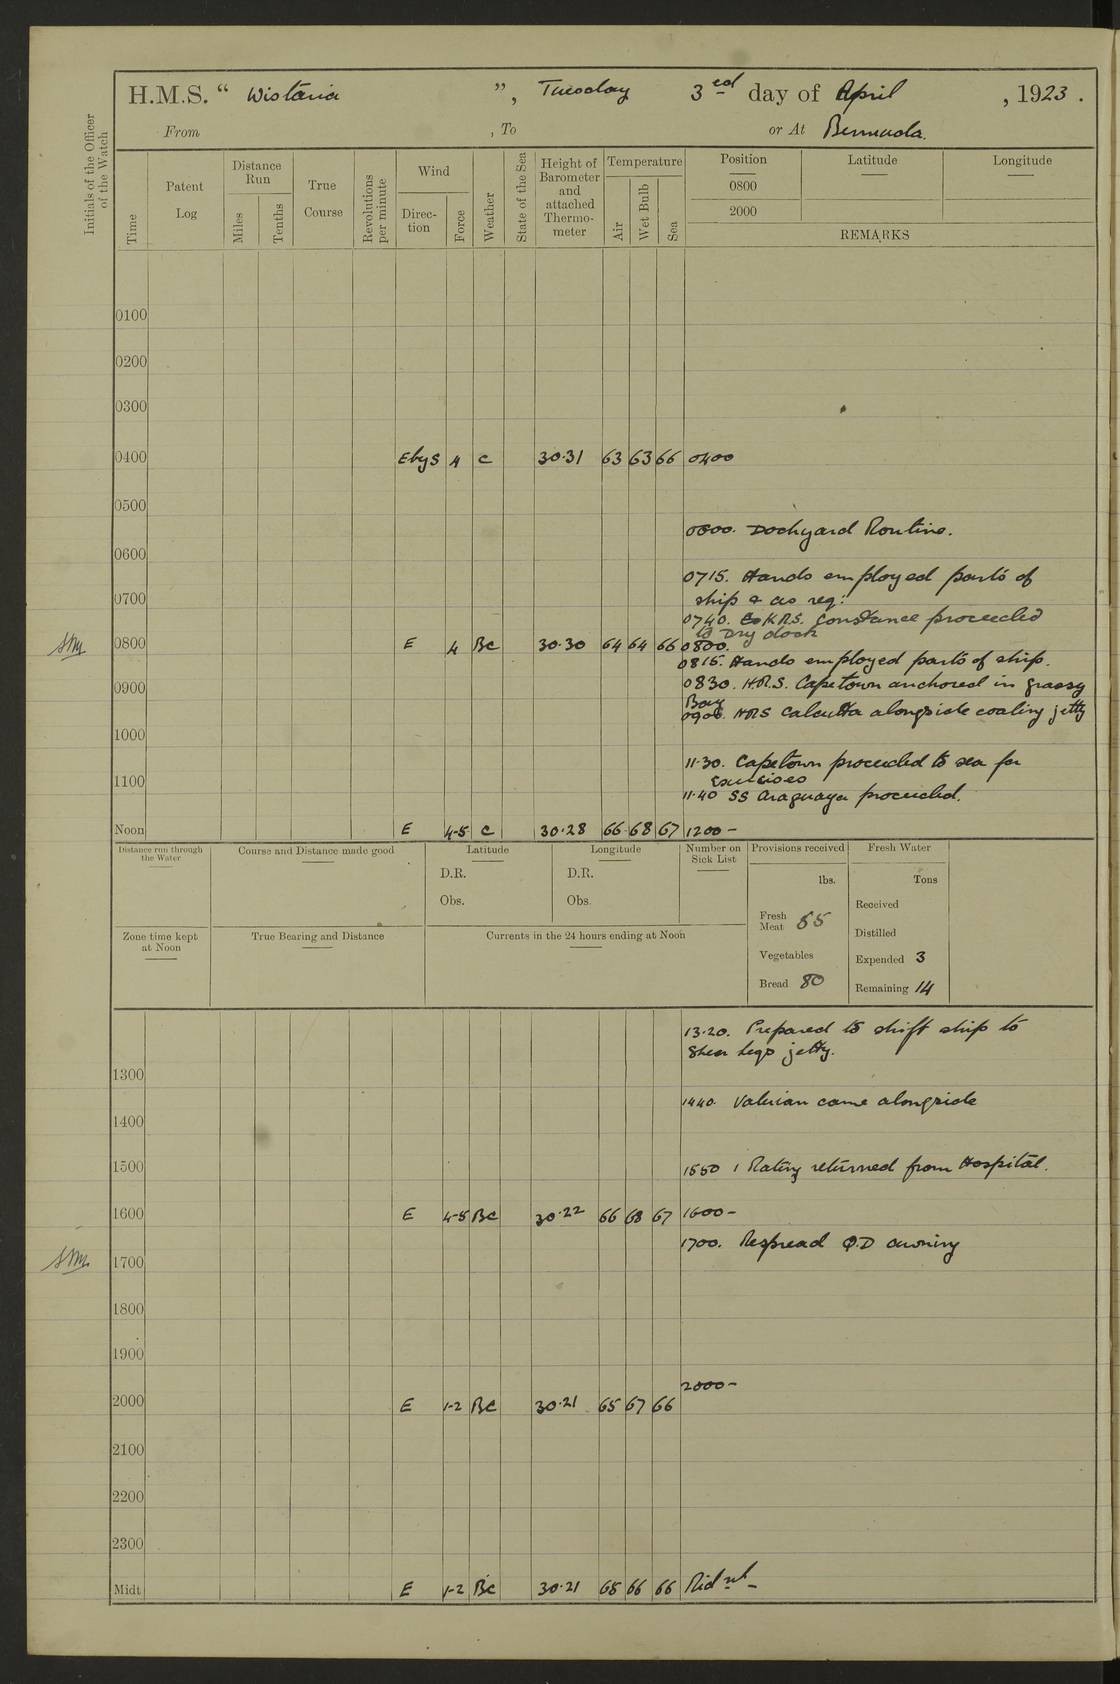 H.M.S. “ Wistaria ”, Tuesday 3ed day of April , 1923 .
From , To or At Bermuda.
Initials of the Officer
of the Watch
Time
Patent
Log
Distance
Run
Miles
Tenths
True
Course
Revolutions
per minute
Wind
Direc-
tion
Force
Weather
State of the Sea
Height of
Barometer
and
attached
Thermo-
meter
Temperature
Air
Wet Bulb
Sea
Position Latitude Longitude
0800
2000
REMARKS
0100
0200
0300
0400 E by S 4 C 30.31 63 63 66 0400
0500
0600. Dockyard Routine.
0600
0715. Hands employed parts of
0700 ship & as req:
0740. H.M.S. Constance proceeded
to Dry dock
0800 E 4 BC 30.30 64 64 66 0800.
0815. Hands employed parts of ship.
0900 0830. H.M.S. Capetown anchored in grassy
Bay
0906. HMS Calcutta alongside coaling jetty
1000
11.30. Capetown proceeded to sea for
1100 Exercises
11.40 SS Araguaya proceeded.
Noon E 4-5 C 30.28 66 68 67 1200 -
Distance run through
the Water
Course and Distance made good
Latitude
D.R.
Obs.
Longitude
D.R.
Obs.
Number on
Sick List
Provisions received
lbs.
Fresh
Meat 55
Vegetables
Bread 80
Fresh Water
Tons
Received
Distilled
Expended 3
Remaining 14
Zone time kept
at Noon
True Bearing and Distance
Currents in the 24 hours ending at Noon
13.20. Prepared to shift ship to
Sheer Legs jetty.
1300
1440. Valerian came alongside
1400
1500 1550 1 Rating returned from Hospital.
1600 E 4-5 BC 30.22 66 68 67 1600 -
1700. Respread Q.D awning
1700
1800
1900
2000 -
2000 E 1-2 BC 30.21 65 67 66
2100
2200
2300
Midt E 1-2 BC 30.21 65 66 66 Midnt -